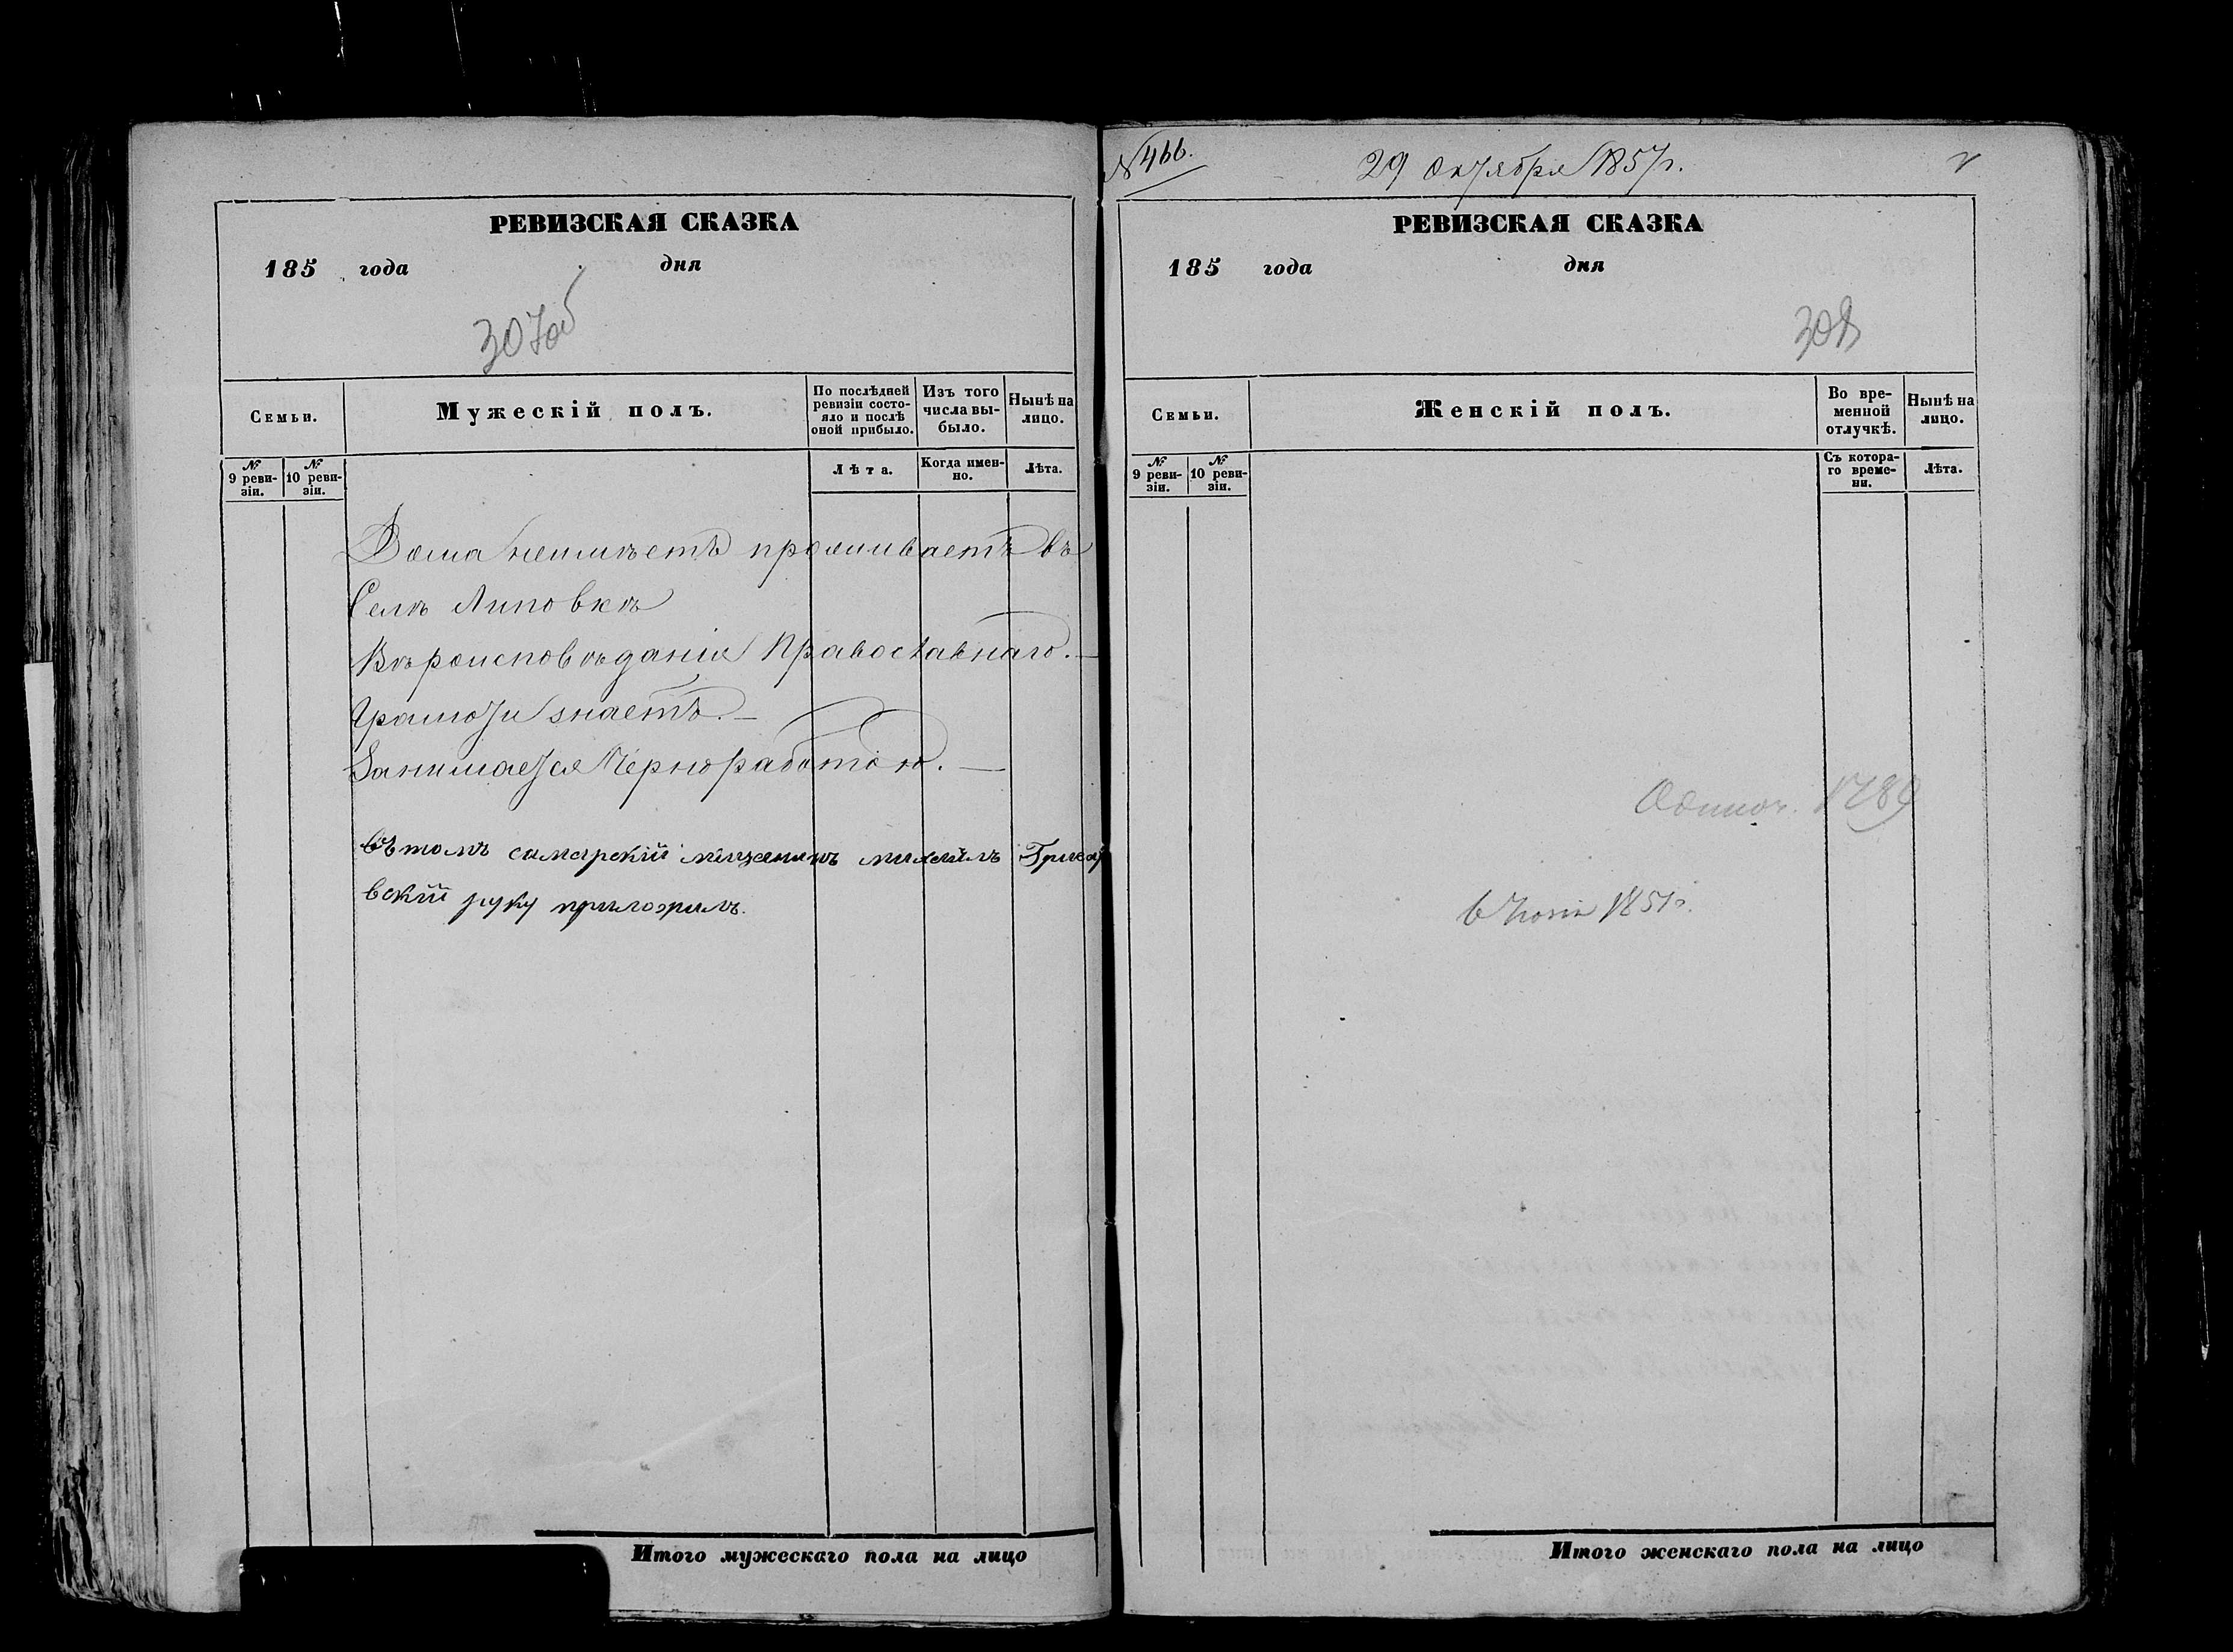 РЕВИЗСКАЯ СКАЗКА
185 года дня
307об
Семьи.
Мужескій полъ.
По послѣдней ревизіи состояло и послѣ оной прибыло.
Изъ того числа выбыло.
Нынѣ на лицо.
№ 9 ревизіи.
№ 10 ревизіи.
Лѣта.
Когда именно.
Лѣта.
Дома неимѣетъ проживаетъ въ
Селѣ Липовкѣ
Вѣроисповѣданія Православнаго.—
Грамоти знаетъ.—
Занимается Чернорабòтою.—
вътомъ самарский мещанинъ
вский руку приложилъ.
Итого мужескаго пола на лицо
№466.
29 Октября 1857г.
РЕВИЗСКАЯ СКАЗКА
185 года дня
308
Семьи.
Женскій полъ.
Во временной отлучкѣ.
Нынѣ на лицо.
№ 9 ревизіи.
№ 10 ревизіи.
Съ котораго времени.
Лѣта.
Одиноч.
Итого женскаго пола на лицо